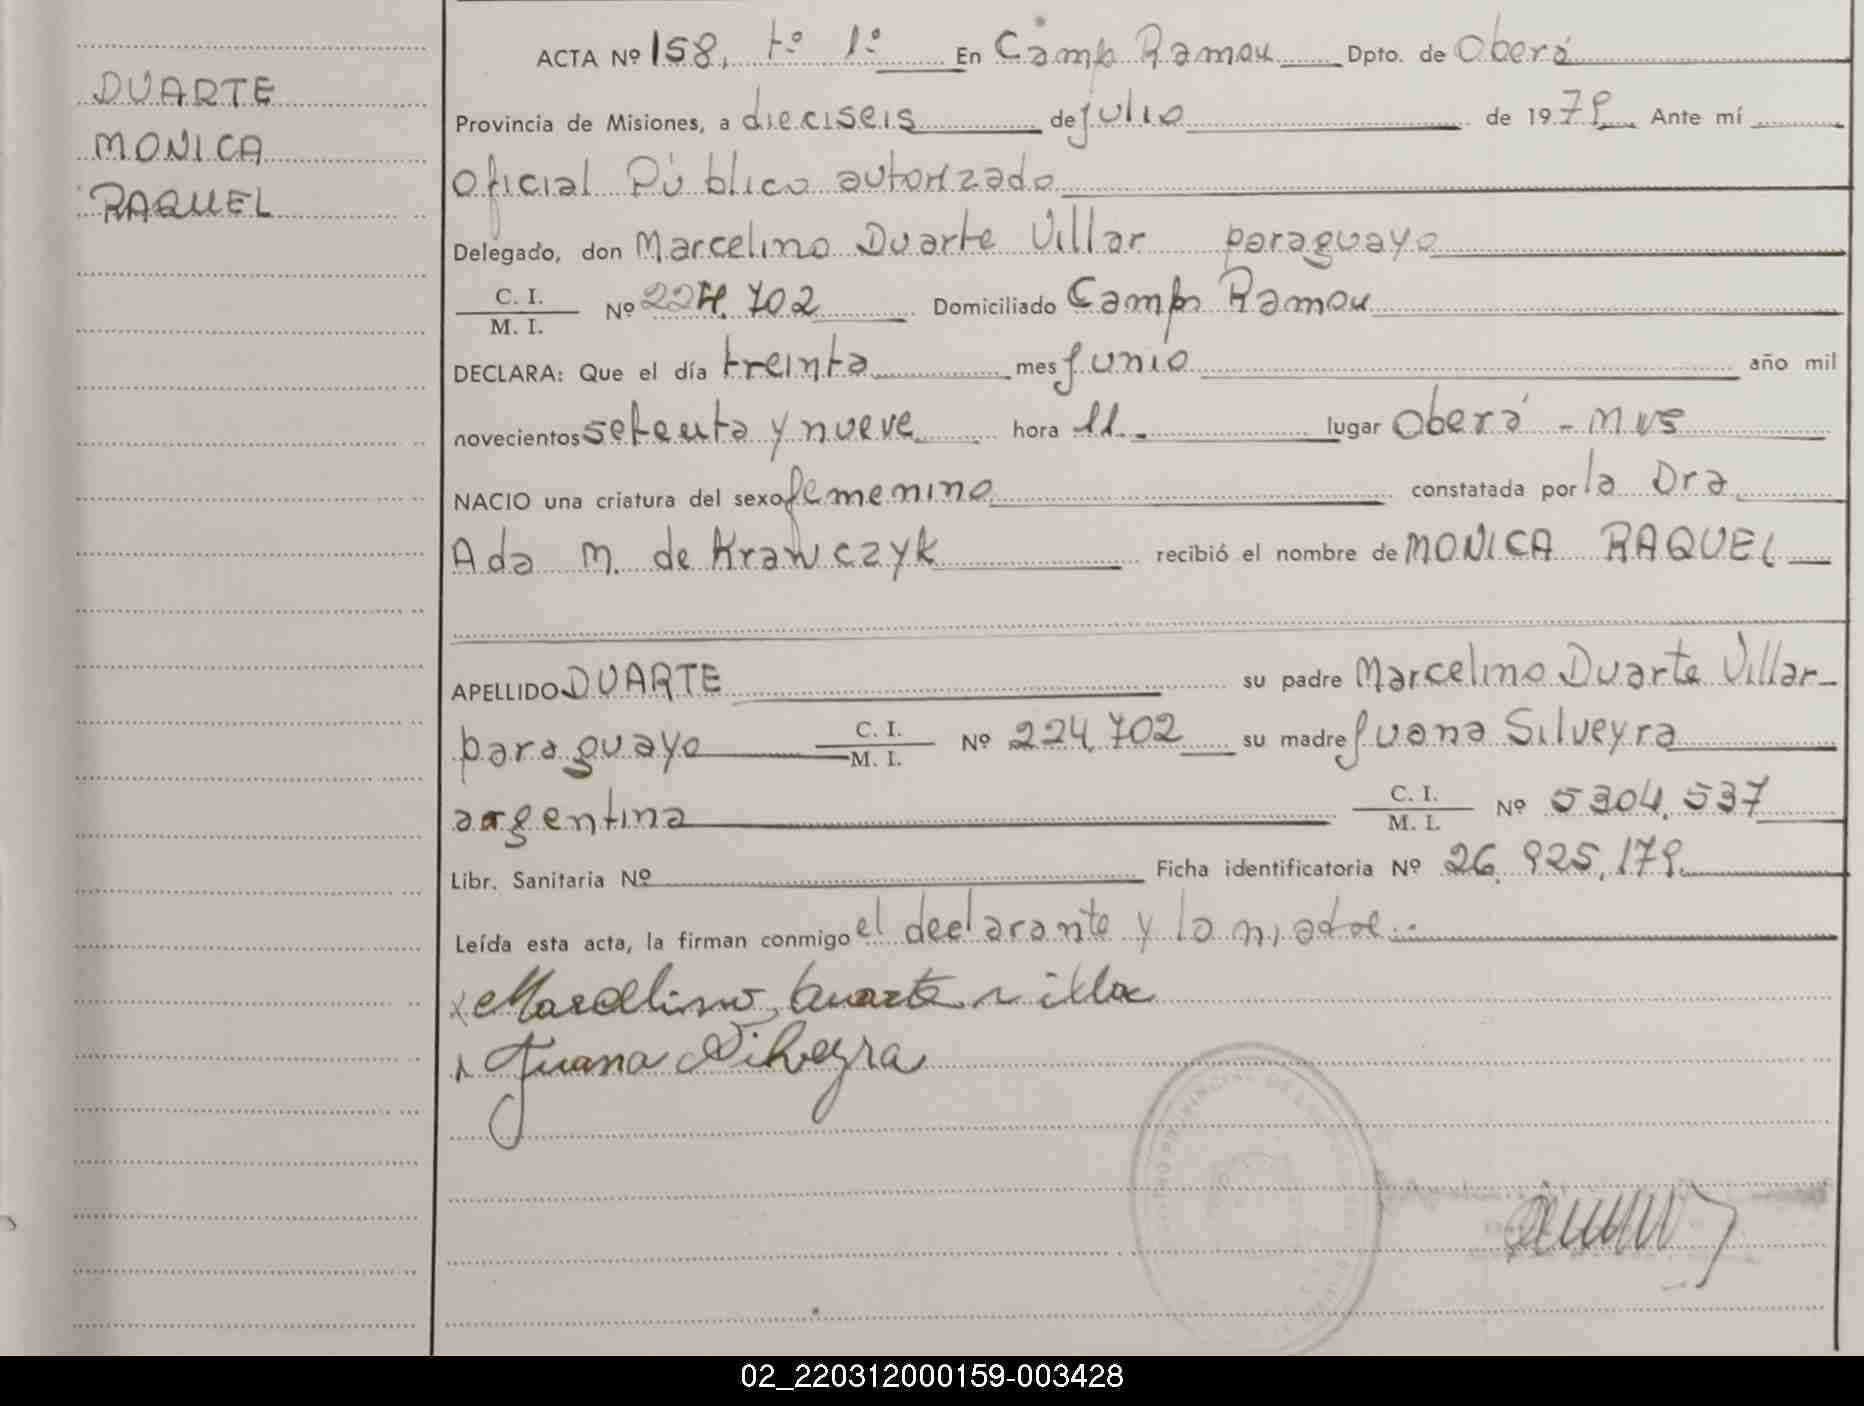 DUARTE
MONICA
RAQUEL
ACTA Nº 158, tº 1º En Campo Ramon Dpto. de Oberá
Provincia de Misiones, a dieciseis de julio de 1979 Ante mí
Oficial Público autorizado
Delegado, don Marcelino Duarte Villar paraguayo
C. I.
M. I.
Nº 224.702 Domiciliado Campo Ramon
DECLARA: Que el día treinta mes junio año mil
novecientos setenta y nueve hora 11.- lugar Oberá - Mns
NACIO una criatura del sexo femenino constatada por la Dra
Ada M. de Krawczyk recibió el nombre de MONICA RAQUEL
APELLIDO DUARTE su padre Marcelino Duarte Villar-
paraguayo C. I. M. I. Nº 224,702 su madre Juana Silveyra
argentina C. I. M. I. Nº 5304,537
Libr. Sanitaria Nº Ficha identificatoria Nº 26.925,179.
Leída esta acta, la firman conmigo el declarante y la madre.-
x Marcelino Duarte villar
x Juana Silveyra
02_220312000159-003428